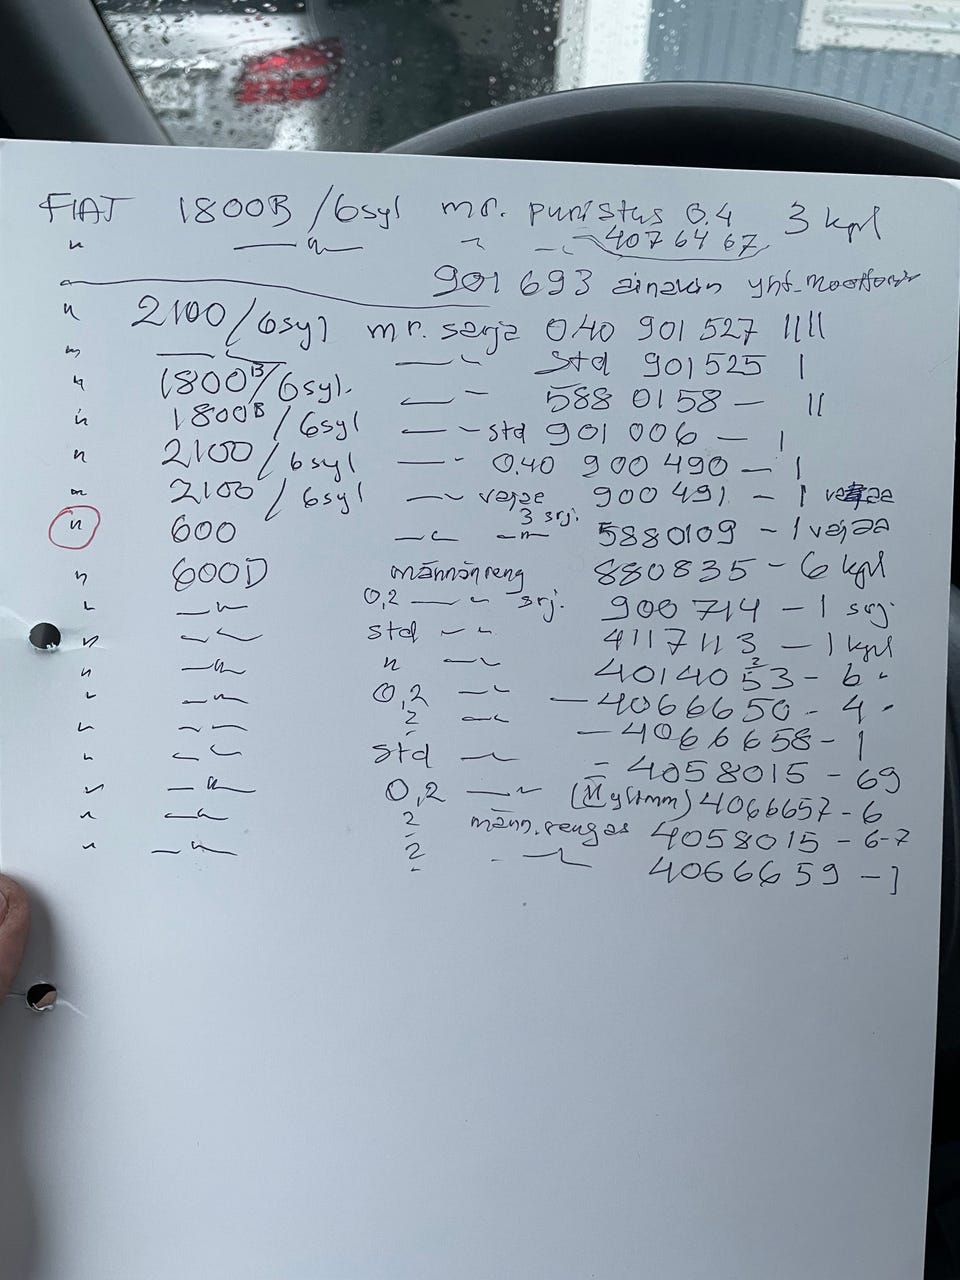 FIAT 1800B /6syl mr. puristus 0.4 3 kpl
" —"— " —" 4076467
901 693 ainakin yht-moottori
" 2100/6syl mr. sarja 0.40 901 527 ||||
" —"— —"— std 901525 |
" 1800B/6syl. —"— 5880158 — ||
" 1800B/6syl —"— std 901 006 — |
" 2100/6syl —"— 0.40 900 490 — |
" 2100/6syl —"— vajaa 900 491 — 1 vajaa
" 600 —"— 3 srj. —"— 5880109 - 1 vajaa
" 600D männänreng 880835 - 6 kpl
" —"— 0,2 —"— srj. 900 714 - 1 srj.
" —"— std —"— 4117113 — 1 kpl
" —"— " —"— 4014053 - 6 "
" —"— 0,2 —"— — 4066650 - 4 "
" —"— ? —"— — 4066658 - 1
" —"— std —"— - 4058015 - 69
" —"— 0,2 —"— 4066657 - 6
" —"— ? männ.rengas 4058015 - 6-7
" —"— ? —"— 4066659 - 1